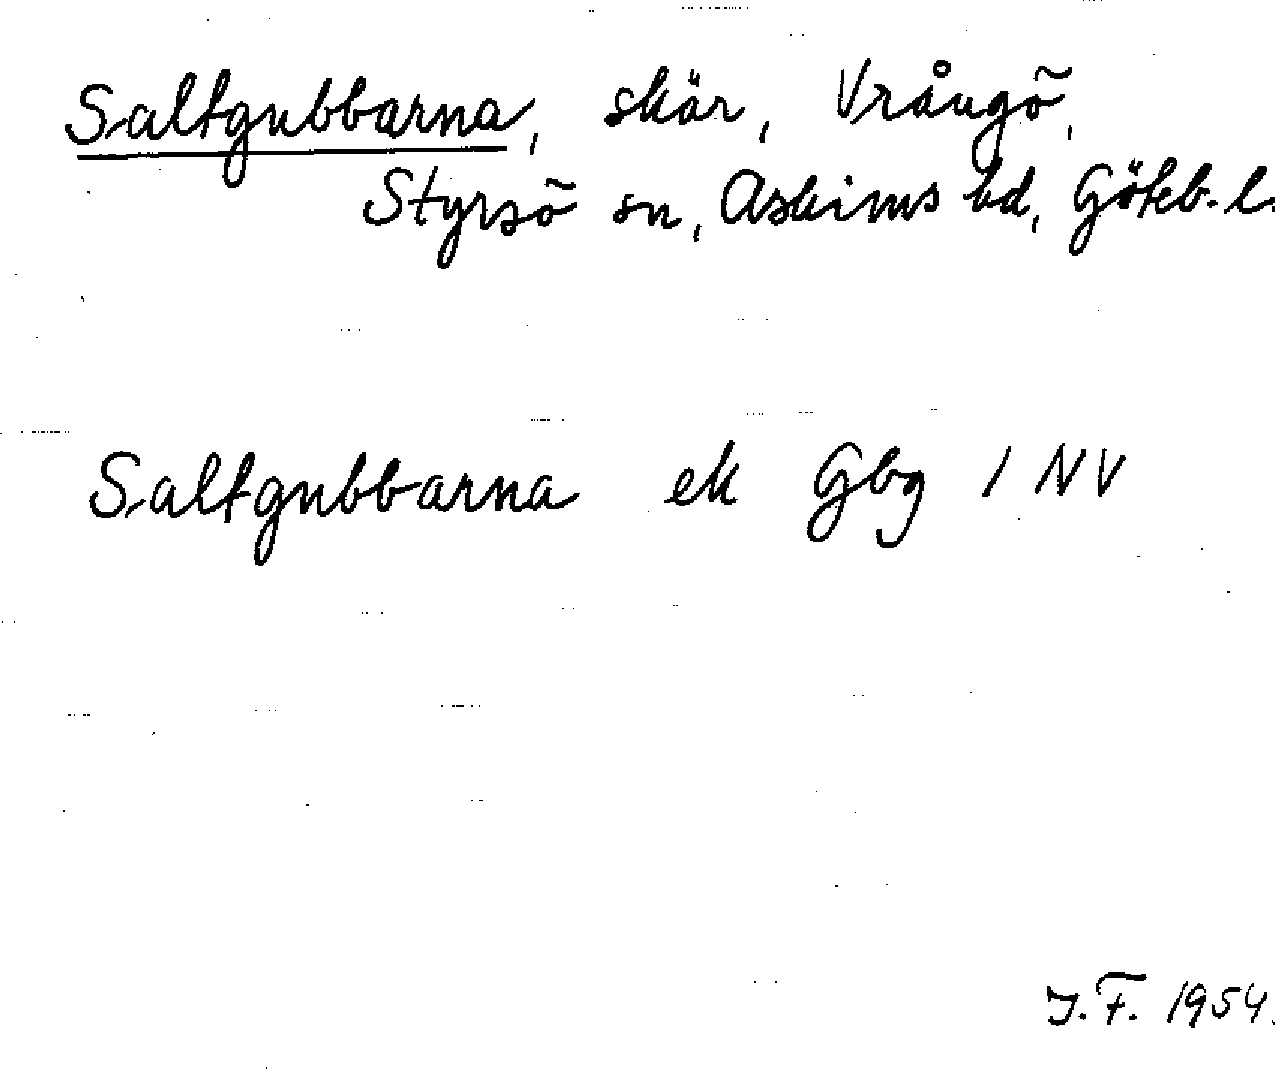 Saltgubbarna, skär, Vrångö,
Styrsö sn, Askims hd, Göteb. l.
Saltgubbarna ek Gbg 1 NV
J.F. 1954.